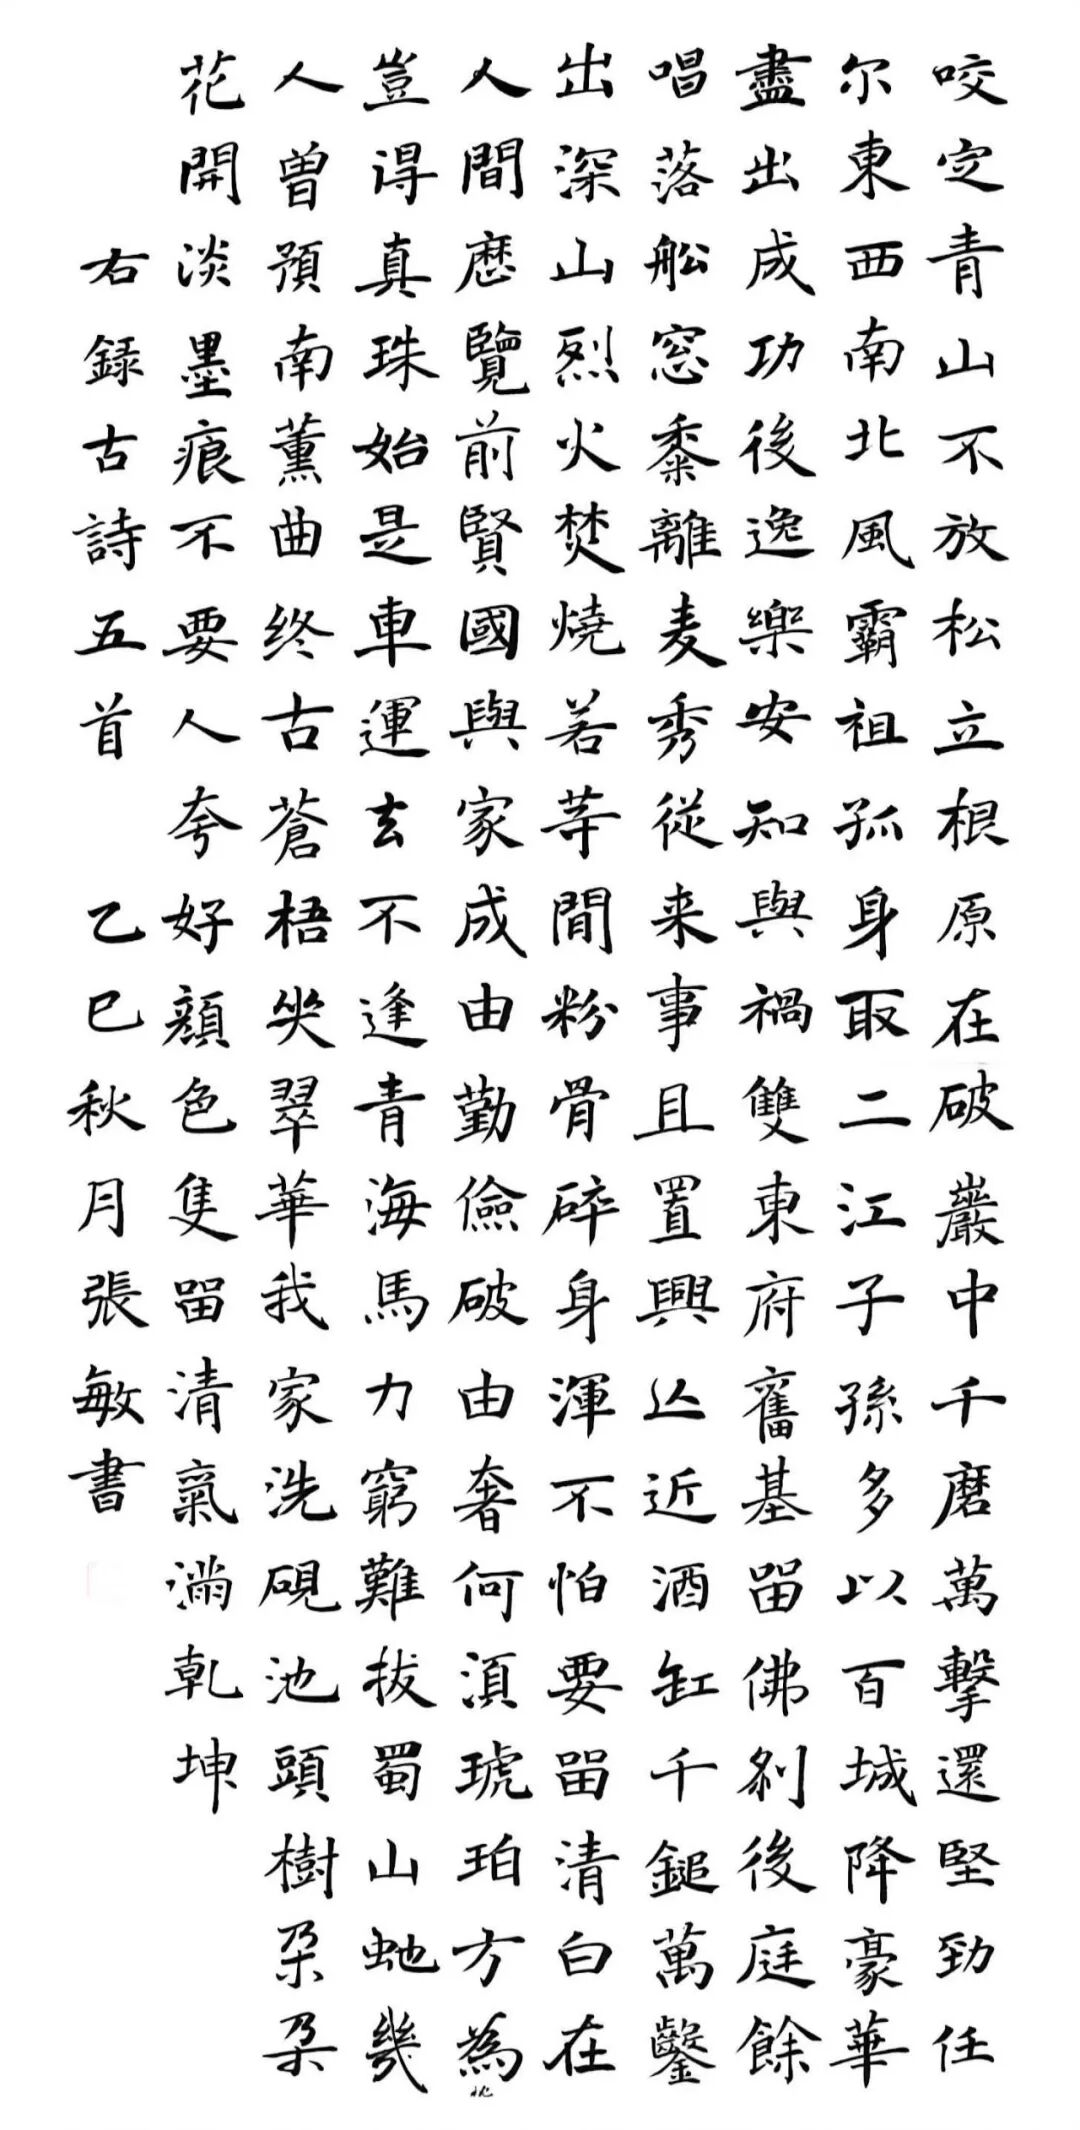 咬定青山不放松立根原在破巖中千磨萬擊還堅勁任
尔東西南北風霸祖孤身取二江子孫多以百城降豪華
盡出成功後逸樂安知與禍雙東府舊基留佛刹後庭餘
唱落舩窓黍離麦秀從来事且置興亾近酒缸千鎚萬鑿
出深山烈火焚燒若等閒粉骨碎身渾不怕要留清白在
人間歷覽前賢國與家成由勤儉破由奢何須琥珀方為枕
豈得真珠始是車運去不逢青海馬力窮難拔蜀山虵幾
人曾預南薰曲终古蒼梧哭翠華我家洗硯池頭樹朵朵
花開淡墨痕不要人夸好顔色隻留清氣滿乾坤
右録古詩五首 乙巳秋月張敏書